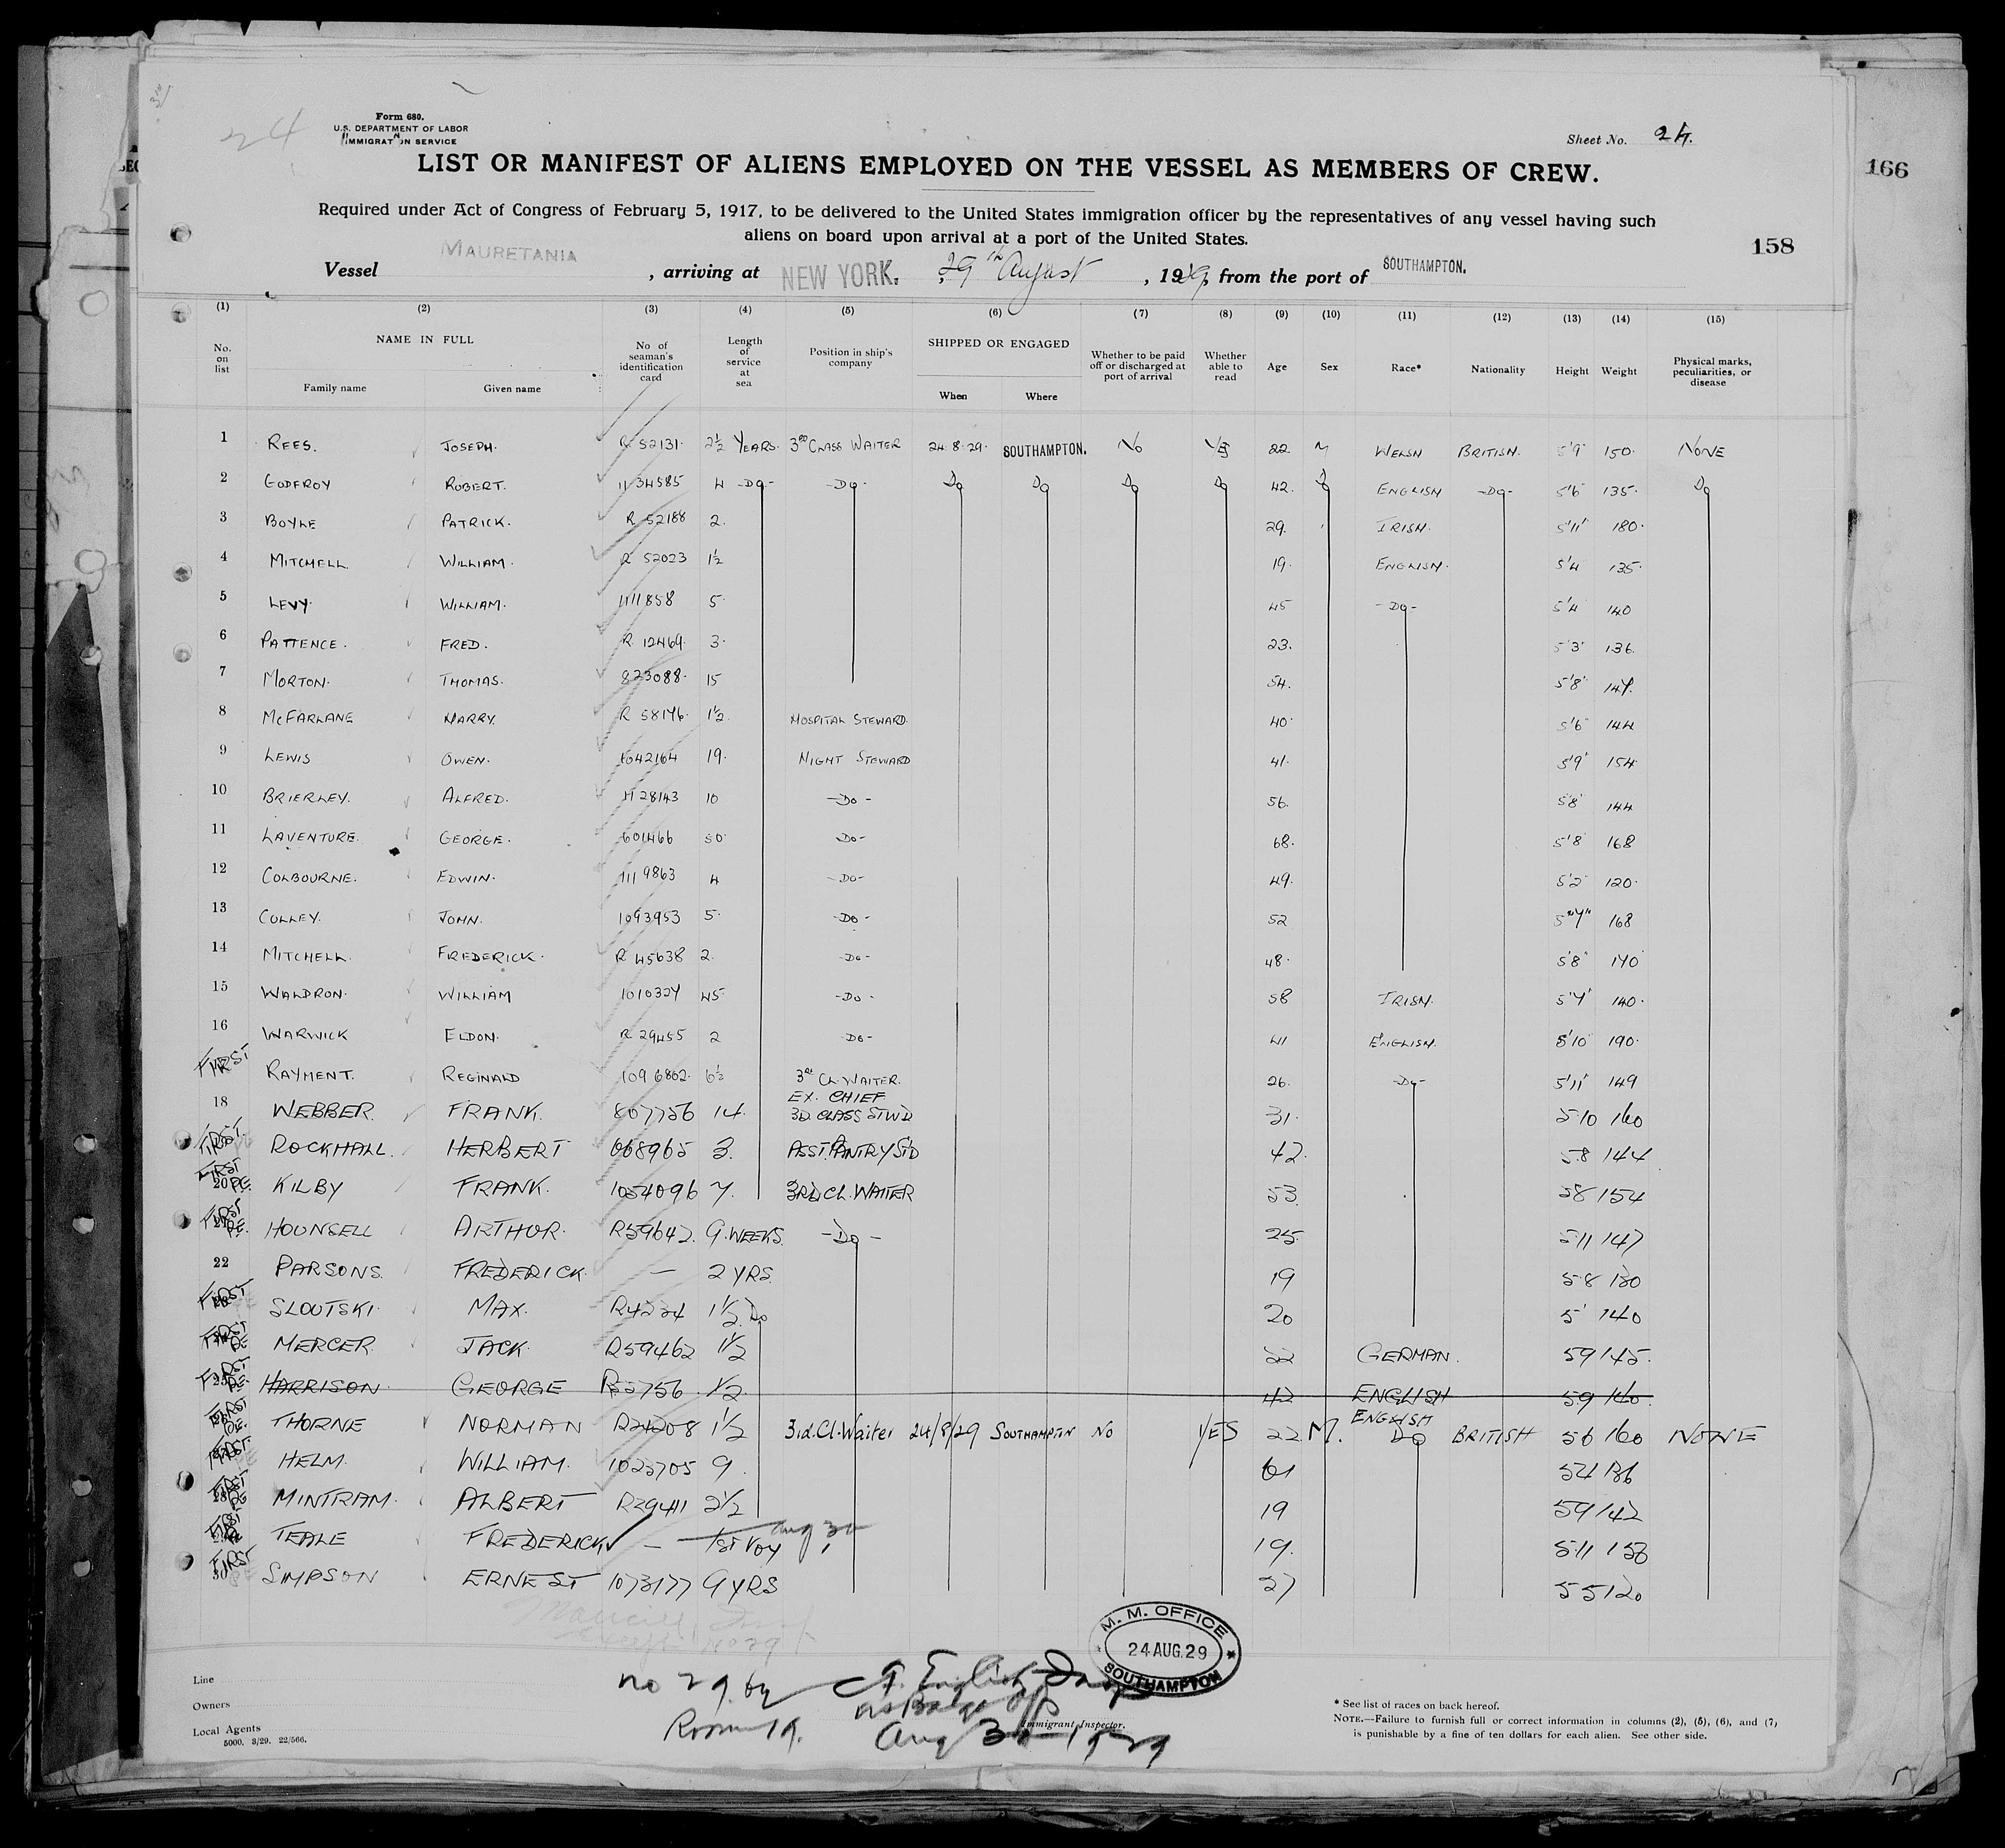 24
Form 680.
U.S. DEPARTMENT OF LABOR
IMMIGRATION SERVICE
Sheet No. 24.
LIST OR MANIFEST OF ALIENS EMPLOYED ON THE VESSEL AS MEMBERS OF CREW.
166
Required under Act of Congress of February 5, 1917, to be delivered to the United States immigration officer by the representatives of any vessel having such
aliens on board upon arrival at a port of the United States.
158
Vessel MAURETANIA, arriving at NEW YORK. 29th August, 1929, from the port of SOUTHAMPTON.
(1) (2) (3) (4) (5) (6) (7) (8) (9) (10) (11) (12) (13) (14) (15)
No. on list NAME IN FULL Family name Given name No of seaman's identification card Length of service at sea Position in ship's company SHIPPED OR ENGAGED When Where Whether to be paid off or discharged at port of arrival Whether able to read Age Sex Race* Nationality Height Weight Physical marks, peculiarities, or disease
1 REES. JOSEPH. R 52131. 2½ YEARS. 3RD CLASS WAITER 24.8.29. SOUTHAMPTON. NO YES 22. M WELSH BRITISH. 5'9" 150. NONE
2 GODFROY ROBERT. 1134585 4 -DO- -DO- DO DO DO DO 42. DO ENGLISH -DO- 5'6" 135. DO
3 BOYLE PATRICK. R 52188 2. 29. IRISH. 5'11" 180.
4 MITCHELL WILLIAM. R 52023 1½ 19. ENGLISH. 5'4" 135.
5 LEVY. WILLIAM. 1111858 5. 45 -DO- 5'4" 140
6 PATTENCE. FRED. R. 12469. 3. 23. 5'3" 136.
7 MORTON. THOMAS. 823088. 15 54. 5'8" 147.
8 McFARLANE HARRY. R 58176. 1½. HOSPITAL STEWARD. 40. 5'6" 144
9 LEWIS OWEN. 1042164 19. NIGHT STEWARD 41. 5'9" 154
10 BRIERLEY. ALFRED. 1128143 10 -DO- 56. 5'8" 144
11 LAVENTURE. GEORGE. 601466 50. -DO- 68. 5'8" 168
12 COLBOURNE. EDWIN. 1119863 4 -DO- 49. 5'2" 120.
13 COLLEY. JOHN. 1093953 5. -DO- 52 5'7" 168
14 MITCHELL FREDERICK. R 45638 2. -DO- 48. 5'8" 170
15 WALDRON. WILLIAM 1010327 45 -DO- 58 IRISH. 5'7" 140.
16 WARWICK ELDON. R 29455 2 -DO- 41 ENGLISH. 5'10" 190.
FIRST RAYMENT. REGINALD 1096862. 6½ 3rd CL. WAITER. 26. -DO- 5'11" 149
18 WEBBER FRANK. 807756 14. EX. CHIEF 3D CLASS STWD 31. 5 10 160
FIRST ROCKHALL. HERBERT 068965 3. ASST. PANTRY STD 42. 5.8 144
FIRST 20 KILBY FRANK. 1054096 7. 3RD CL. WAITER 53. 58 154
FIRST HOUNSELL ARTHUR. R59642. 9. WEEKS. -DO- 25 5 11 147
22 PARSONS. FREDERICK. — 2 YRS. 19 5.8 130
FIRST SLOUTSKI. MAX. R4234 1½ DO 20 5' 140
FIRST MERCER. JACK. R59462 1½ 22 GERMAN. 59 145.
FIRST HARRISON. GEORGE ½ 42 ENGLISH 59 160.
FIRST THORNE NORMAN R24208 1½ 3rd. Cl. Waiter 24/8/29 SOUTHAMPTON NO YES 22 M. ENGLISH DO BRITISH 56 160 NONE
FIRST HELM. WILLIAM. 1023705 9. 61 54 136
FIRST MINTRAM. ALBERT R29411 2½ 19 59 142
FIRST TEALE FREDERICK — 1ST VOY Aug 30 19. 5.11 158
FIRST 30 SIMPSON ERNEST 1073177 9 YRS 27 5 5 120
M. M. OFFICE
24 AUG. 29
SOUTHAMPTON
Line
no 29. by
Owners
Room 19.
Immigrant Inspector.
Aug 30 1929
Local Agents
5000. 3/29. 22/566.
* See list of races on back hereof.
NOTE.—Failure to furnish full or correct information in columns (2), (5), (6), and (7),
is punishable by a fine of ten dollars for each alien. See other side.